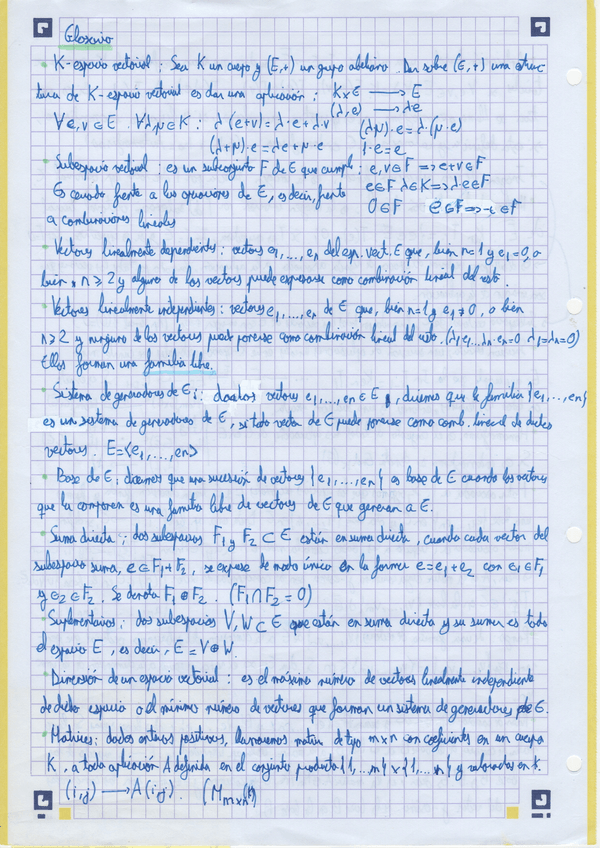 Glosario
· K-espacio vectorial: Sea K un cuerpo y (E,+) un grupo abeliano. Dar sobre (E,+) una estruc-
tura de K-espacio vectorial es dar una aplicación: K×E → E
(λ,e) → λe
∀e,v∈E ∀λ,μ∈K: λ(e+v)=λ·e+λ·v (λμ)·e=λ·(μ·e)
(λ+μ)·e=λe+μ·e 1·e=e
· Subespacio vectorial: es un subconjunto F de E que cumple: e,v∈F ⇒ e+v∈F
Es cerrado frente a las operaciones de E, es decir, frente e∈F λ∈K ⇒ λ·e∈F
a combinaciones lineales 0∈F e∈F ⇒ -e∈F
· Vectores linealmente dependientes: vectores e₁,...,en del esp. vect. E que, bien n=1 y e₁=0, o
bien, n≥2 y alguno de los vectores puede expresarse como combinación lineal del resto.
· Vectores linealmente independientes: vectores e₁,...,en de E que, bien n=1 y e₁≠0, o bien
n≥2 y ninguno de los vectores puede ponerse como combinación lineal del resto. (λ₁e₁...λn·en=0 λ₁=λn=0)
Ellos forman una familia libre.
· Sistema de generadores de E: dados vectores e₁,...,en∈E, diremos que la familia {e₁,...,en}
es un sistema de generadores de E, si todo vector de E puede ponerse como comb. lineal de dichos
vectores. E=<e₁,...,en>
· Base de E: diremos que una sucesión de vectores {e₁,...,en} es base de E cuando los vectores
que la componen es una familia libre de vectores de E que generan a E.
· Suma directa: dos subespacios F₁ y F₂ ⊂ E están en suma directa, cuando cada vector del
subespacio suma, e∈F₁+F₂, se expresa de modo único en la forma e=e₁+e₂ con e₁∈F₁
y e₂∈F₂. Se denota F₁⊕F₂. (F₁∩F₂=0)
· Suplementarios: dos subespacios V,W⊂E que están en suma directa y su suma es todo
el espacio E, es decir, E=V⊕W.
· Dimensión de un espacio vectorial: es el máximo número de vectores linealmente independiente
de dicho espacio o el mínimo número de vectores que forman un sistema de generadores de E.
· Matrices: dados enteros positivos, llamaremos matriz de tipo m×n con coeficientes en un cuerpo
K, a toda aplicación A definida en el conjunto producto {1,...m}×{1,...n} y valorada en K.
(i,j) → A(i,j). (Mm×n(K))